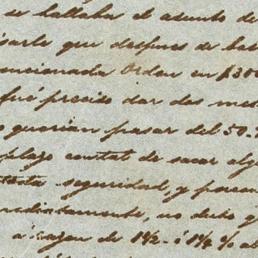 se hallaba el asunto de
que despues de
mencionada Orden en $300
fué preciso dar dos
querian pasar del 50.
plazo contal de sacar alg
seguridad, y para
mediatamente, no debo q
a cajon de 1½ ó 1¼ %